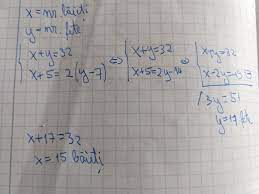 x = nr. băieți
y = nr. fete
x+y=32
x+5=2(y-7)
⇔
x+y=32
x+5=2y-14
⇔
x+y=32
3y=51
y=17 fete
x+17=32
x=15 băieți